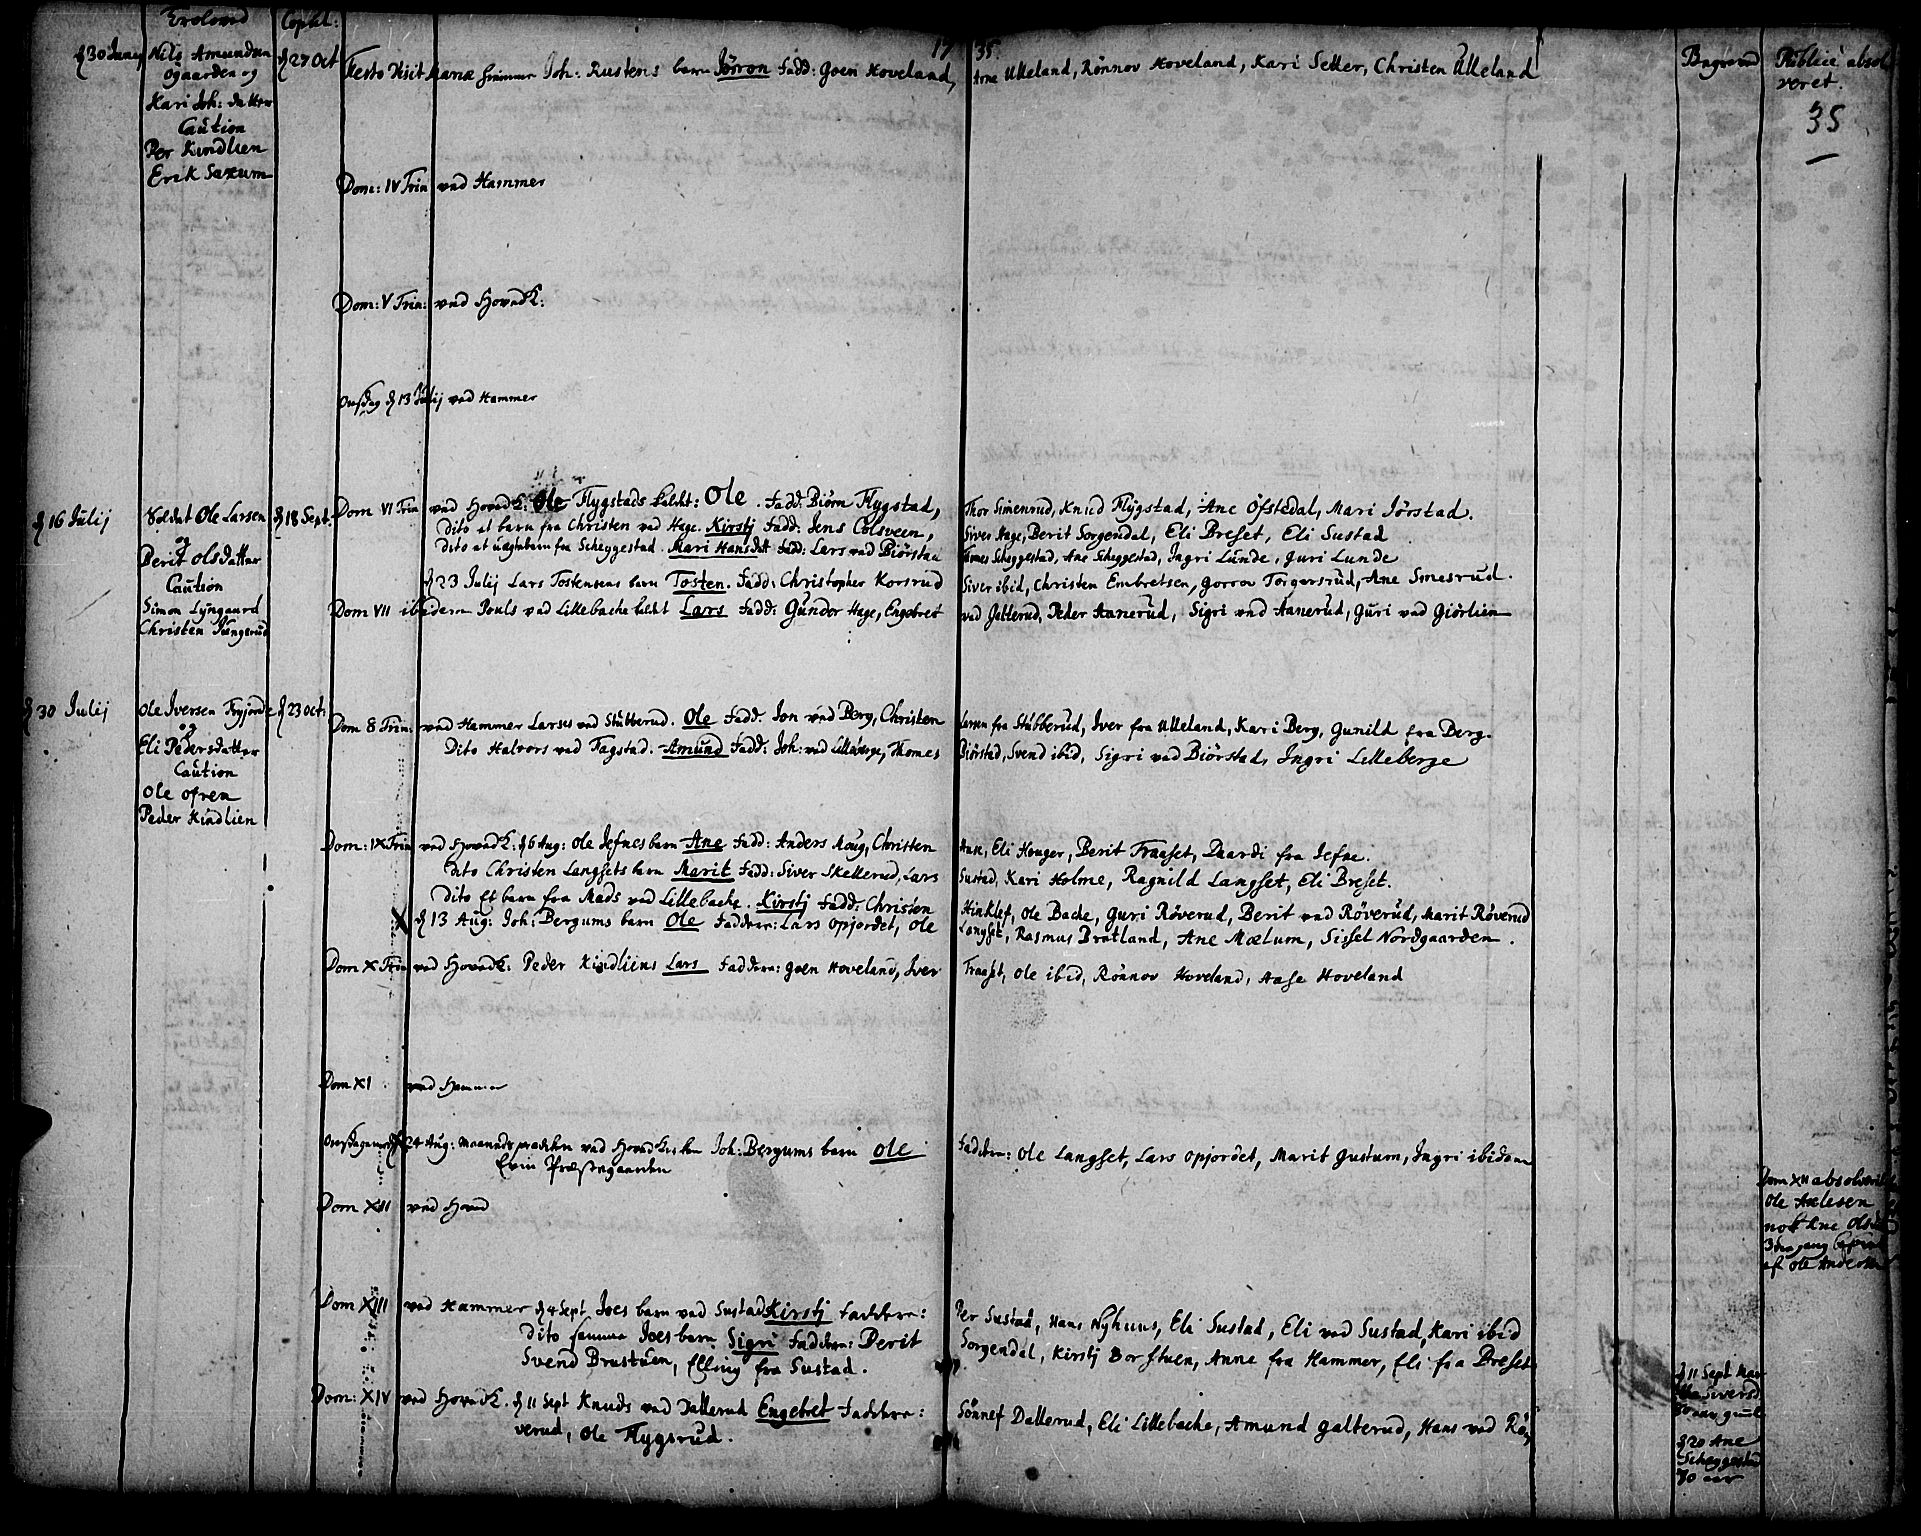 Trolovede
Copul:
17 35
Begraved
Publicè absol
veret.
35
d 30 Junij
Nils Amundsen
Ogaarden og
Kari Joh: datter
Caution
Per Kindlien
Erik Saxum
d 27 Oct
Festo Visit Mariæ hiemme Joh: Rustens barn Jörron Fadd: Goen Hoveland, Arne Ulleland, Rönnov Hoveland, Kari Setter, Christen Ulleland
Dom: IV Trin ved Hammer
Dom: V Trin: ved HovedK:
Onsdag d 13 Julij ved Hammer
d 16 Julij
Soldat Ole Larsen
og
Berit Olsdatter
Caution
Simon Lyngaard
Christen Jungerud
d 18 Sept.
Dom VI Trin ved HovedK: Ole Flygstads kaldt: Ole. Fadd: Biörn Flygstad, Thor Simenrud, Knud Flygstad, Ane Ofstedal, Mari Jörstad.
Dito et barn fra Christen ved Hage. Kirstj Fadd: Jens Colsveen, Siver Hage, Berit Sorgendal, Eli Breset, Eli Sustad
Dito et uægtebarn fra Scheggestad. Mari Hansdatt Fadd: Lars ved Biörstad Tomes Scheggestad, Ane Scheggestad, Ingri Lunde, Guri Lunde
d 23 Julij Lars Tostensens barn Tosten. Fadd: Christopher Korsrud Siver ibid, Christen Embretsen, Gorron Torgersrud, Ane Smesrud.
Dom VII ibidem Pouls ved Lillebache kaldt Lars Fadd: Gunder Hage, Engebret ved Galterud, Peder Aanerud, Sigri ved Aanerud, Guri ved Giörlien
d 30 Julij
Ole Iversen Fryjorde
og
Eli Pedersdatter
Caution
Ole Ofren
Peder Kindlien
d 23 Oct
Dom 8 Trin: ved Hammer Larses ved Stubberud. Ole Fadd. Jon ved Berg, Christen Larsen fra Stubberud, Iver fra Ulleland, Kari Berg, Gunild fra Berg.
Dito Halvors ved Fagstad. Amund Fadd: Joh: ved Lilleberge, Thomes Biörstad, Svend ibid, Sigri ved Biörstad, Ingri Lilleberge
Dom: IX Trin ved HovedK: d 6 Aug: Ole Jefnes barn Ane Fadd: Anders Moug, Christen Aun, Eli Houger, Berit Fraaset, Daardi fra Jefne.
Dito Christen Langsets barn Marit Fadd: Siver Skellerud, Lars Sustad, Kari Holme, Ragnild Langset, Eli Breset.
Dito Et barn fra Mads ved Lillebache. Kirstj Fadd: Christen Hinklef, Ole Bache, Guri Röverud, Berit ved Röverud, Marit Röverud
X d 13 Aug: Joh: Bergums barn Ole Faddere: Lars Opjordet, Ole Langset, Rasmus Bratland, Ane Mælum, Sissel Nordgaarden.
Dom X Trin ved HovedK: Peder Kindliens Lars Faddere: Goen Hoveland, Iver Fraaset, Ole ibid, Rönnov Hoveland, Aase Hoveland
Dom XI ved Hammer
Onsdagen d 24 Aug: maanedsprædiken ved HovedKirken Joh: Bergums barn Ole Faddere: Ole Langset, Lars Opjordet, Marit Gustum, Ingri ibidem
Evin Præstegaarden
Dom XII ved Hoved
Dom XII absolverit
Ole Axlesen
nok Ane Olsd
3die gang
af Ole Andersen
Dom XIII ved Hammer d 4 Sept Joes barn ved Sustad Kirstj Faddere: Per Sustad, Hans Nyhuus, Eli Sustad, Eli ved Sustad, Kari ibid
Dito samme Joes barn Sigri Faddere: Berit Sorgendal, Kirstj Borstuen, Anne fra Hammer, Eli fra Breset
Svend Brustuen, Elling fra Sustad.
Dom: XIV ved HovedK. d 11 Sept Knuds ved Dallerud Engebret Faddere: Sönnef Dallerud, Eli Lillebache, Amund Galterud, Hans ved Rö-
verud, Ole Flygsrud.
d 11 Sept Mar
Siversd
d 20 Ane
Scheggestad
70 aar